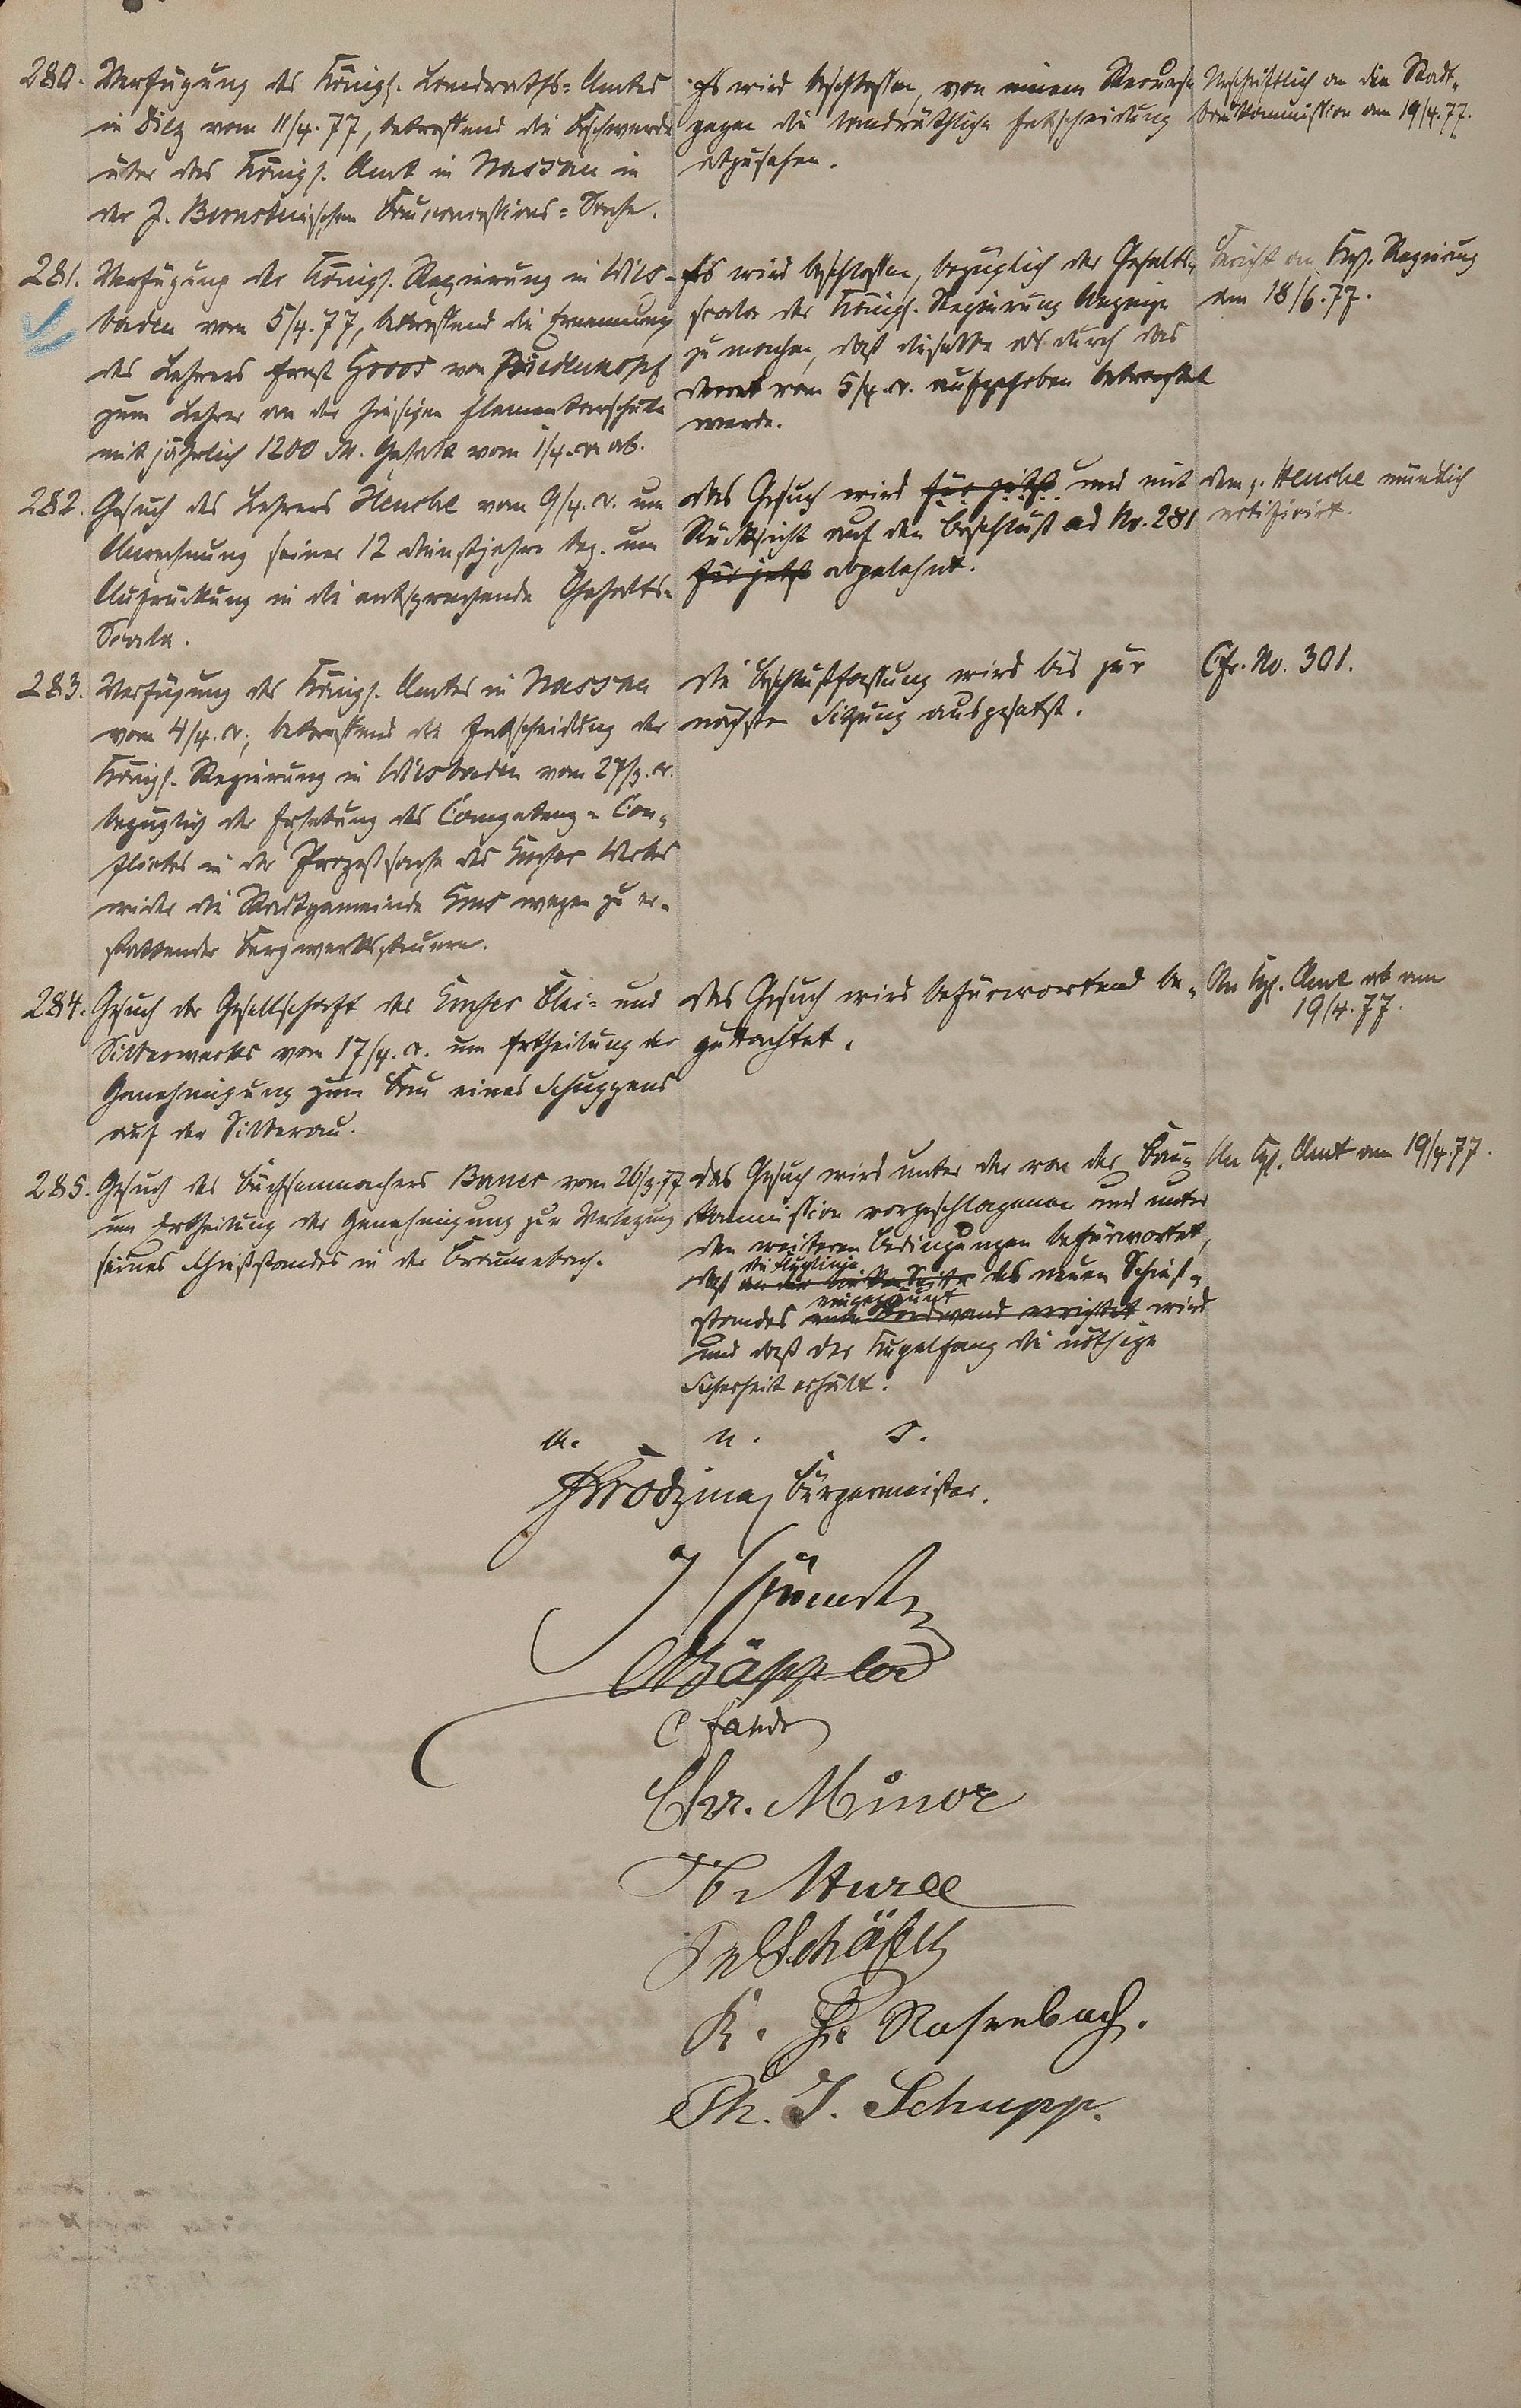 280. Verfügung des Königl. Landraths-Amtes
in Diez vom 11/4. 77, betreffend die Beschwerde
über das Königl. Amt in Nassau in
der J. Bernsteinischen Bauconcessions-Sache.
Es wird beschlossen, von einem Recurse
gegen die landräthliche Entscheidung
abzusehen.
Abschriftlich an die Stadt-
baukommission am 19/4. 77.
281. Verfügung der Königl. Regierung in Wies-
baden vom 5/4. 77, betreffend die Ernennung
des Lehrers Ernst Groos von Biedenkopf
zum Lehrer an der hiesigen Elementarschule
mit jährlich 1200 M. Gehalt vom 1/4. cr. ab.
Es wird beschlossen, bezüglich der Gehalts-
scala der Königl. Regierung Anzeige
zu machen, daß dieselbe als durch das
Decret vom 5/4. cr. aufgehoben betrachtet
werde.
Bericht an Kgl. Regierung
am 18/6. 77.
282. Gesuch des Lehrers Henche vom 9/4. cr. um
Anrechnung seiner 12 Dienstjahre bez. um
Aufrückung in die entsprechende Gehalts-
Scala.
Das Gesuch wird für jetzt und mit
Rücksicht auf den Beschluß ad No. 281
für jetzt abgelehnt.
Dem p. Henche mündlich
notifizirt.
283. Verfügung des Königl. Amtes in Nassau
vom 4/4. cr., betreffend die Entscheidung der
Königl. Regierung in Wiesbaden vom 27/3. cr.
bezüglich der Erhebung des Competenz-Con-
flictes in der Prozeßsache des Emser Werkes
wider die Stadtgemeinde Ems wegen zu er-
stattender Bergwerkssteuern.
Die Beschlußfassung wird bis zur
nächsten Sitzung ausgesetzt.
Cfr. No. 301.
284. Gesuch der Gesellschaft des Emser Blei- und
Silberwerks vom 17/4. cr. um Ertheilung der
Genehmigung zum Bau eines Schuppens
auf der Silberau.
Das Gesuch wird befürwortend be-
gutachtet.
An Kgl. Amt ab am
19/4. 77.
285. Gesuch des Büchsenmachers Bauer vom 26/3. 77
um Ertheilung der Genehmigung zur Verlegung
seines Schießstandes in der Braunebach.
Das Gesuch wird unter der von der Bau-
kommission vorgeschlagenen und unter
den weiteren Bedingungen befürwortet,
die Fluglinie
daß an der linken Seite des neuen Schieß-
eingezäunt
standes eine Bordwand errichtet wird
und daß der Kugelfang die nöthige
Sicherheit erhält.
a. u. s.
Bürgermeister.
Chr. Minor
Schäfer
K. Rosenbach.
Ph. J. Schupp.